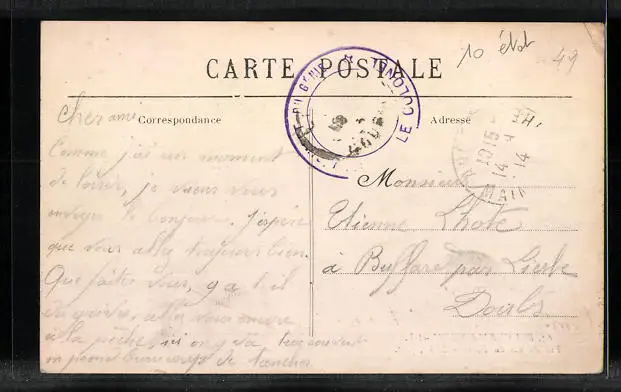 10 état 49
CARTE POSTALE
DU GÉNIE ★ LE COLONEL
Correspondance
Adressé
10 15
14 - 9 14
MAIN
Cher ami
Comme j'ai un moment
de loisir, je viens vous
envoyer le bonjour. J'espère
que vous allez toujours bien.
Que faites vous, y a t il
allez vous encore
à la pêche, ici on y va très souvent
on prend beaucoup de tanches
Monsieur
Etienne Lhote
à Buffard par Liesle
Doubs